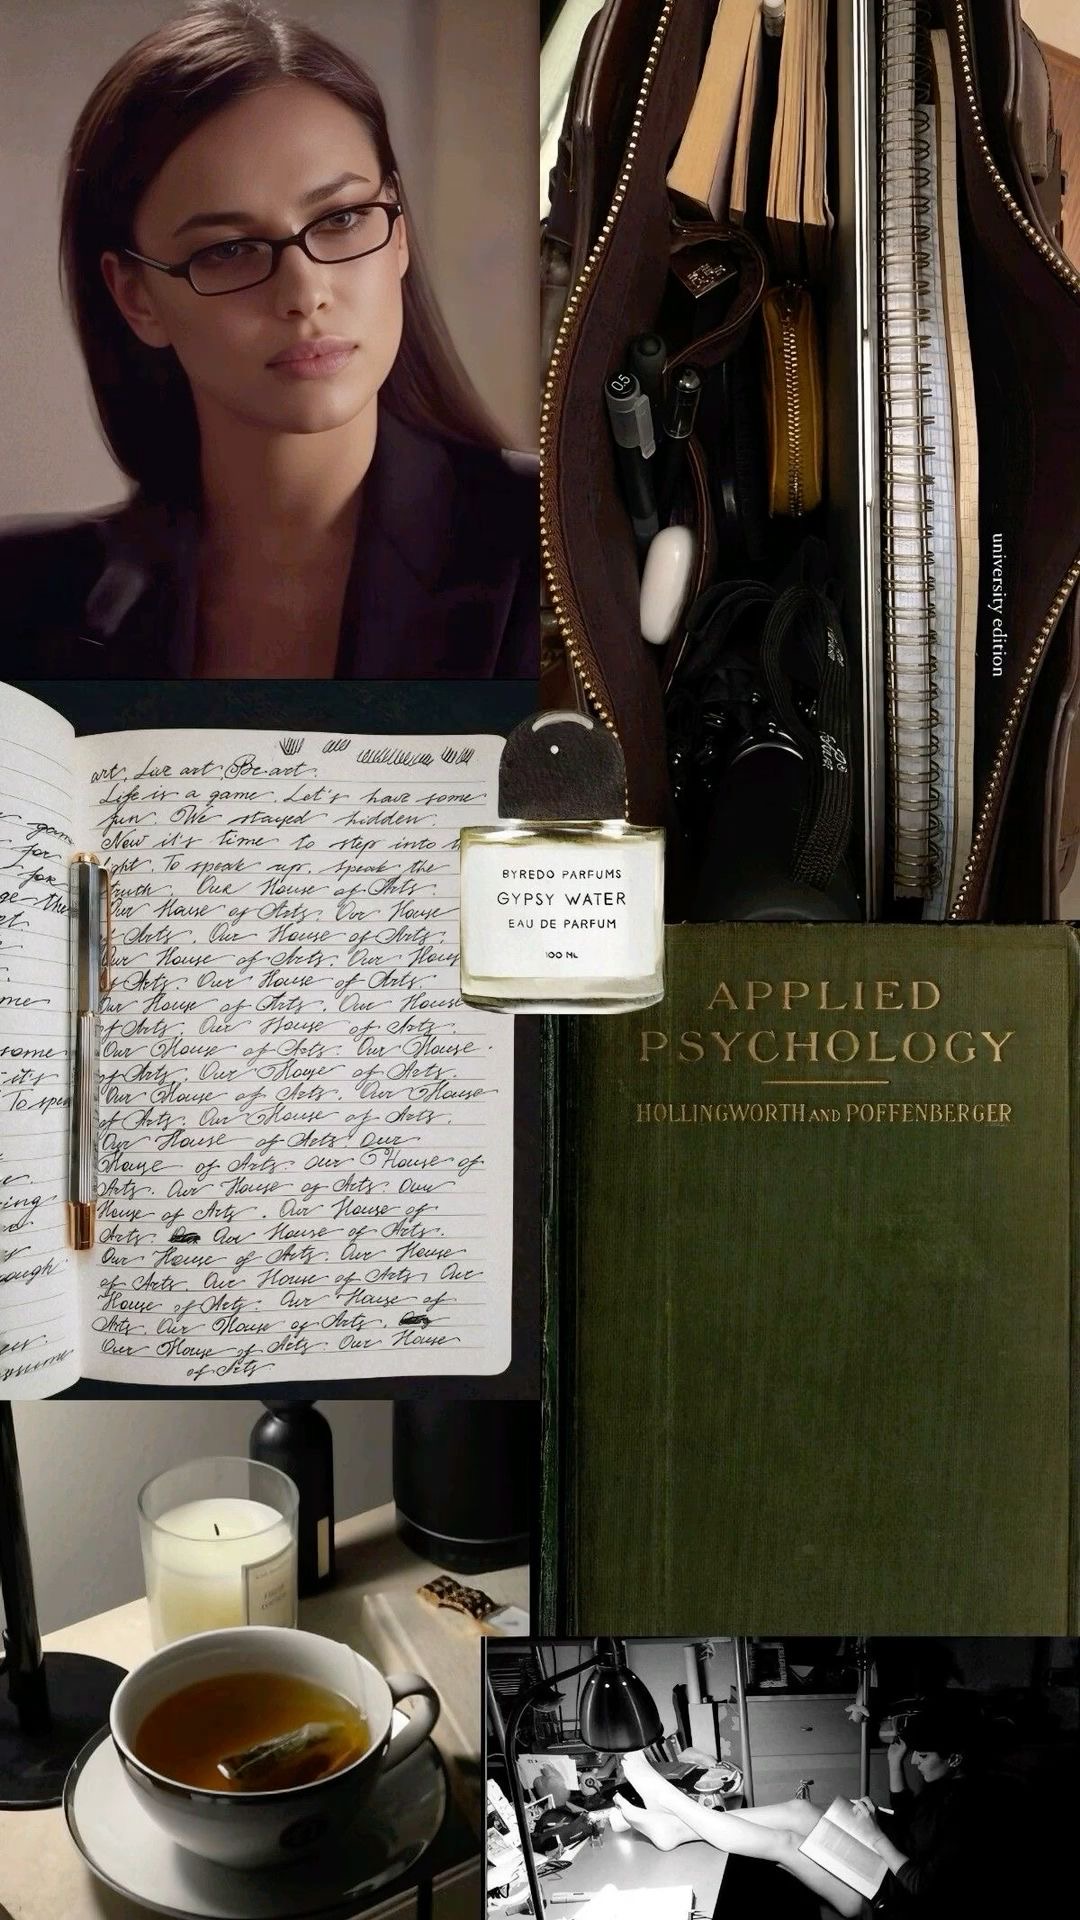 0.5
university edition
art. Live art. Be art.
Life is a game. Let's have some
fun. We stayed hidden.
Now it's time to step into
light. To speak up, speak the
truth. Our House of Arts.
Our House of Arts. Our House
of Arts. Our House of Arts.
Our House of Arts. Our House
of Arts. Our House of Arts.
Our House of Arts. Our House
of Arts. Our House of Arts.
Our House of Arts. Our House.
of Arts. Our House of Arts.
Our House of Arts. Our House
of Arts. Our House of Arts.
Our House of Arts. Our
House of Arts. Our House of
Arts. Our House of Arts. Our
House of Arts. Our House of
Arts. Our House of Arts.
Our House of Arts. Our House
of Arts. Our House of Arts, Our
House of Arts. Our House of
Arts. Our House of Arts.
Our House of Arts. Our House
of Arts
game
for
for
the
me
some
it's
To
BYREDO PARFUMS
GYPSY WATER
EAU DE PARFUM
100 ML
APPLIED
PSYCHOLOGY
HOLLINGWORTH AND POFFENBERGER